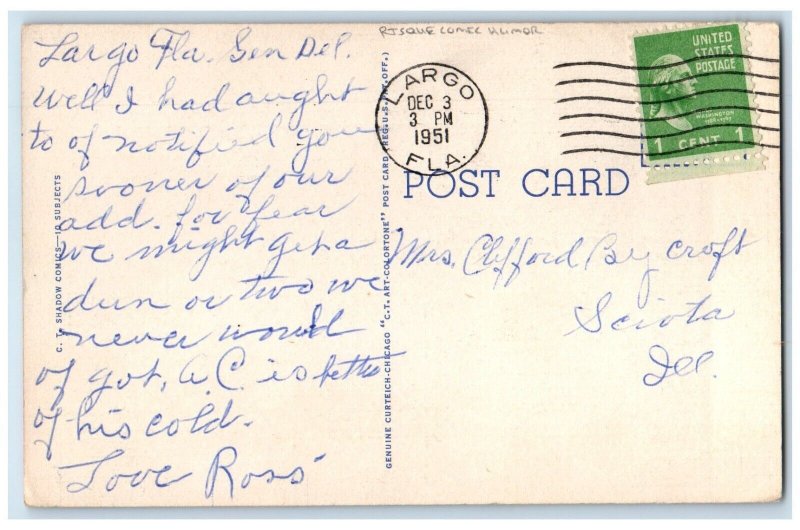 RISQUE COMIC HUMOR
Largo Fla. Gen Del.
Well I had aught
to of notified you
sooner of our
add. for fear
we might get a
dun or two we
never would
of got, A.C. is better
of his cold.
Love Ross
C. T. SHADOW COMICS—10 SUBJECTS
GENUINE CURTEICH-CHICAGO "C.T. ART-COLORTONE" POST CARD (REG. U.S. PAT. OFF.)
LARGO
DEC 3
3 PM
1951
FLA.
UNITED
STATES
POSTAGE
WASHINGTON
1 CENT 1
POST CARD
Mrs. Clifford Bycroft
Sciota
Ill.